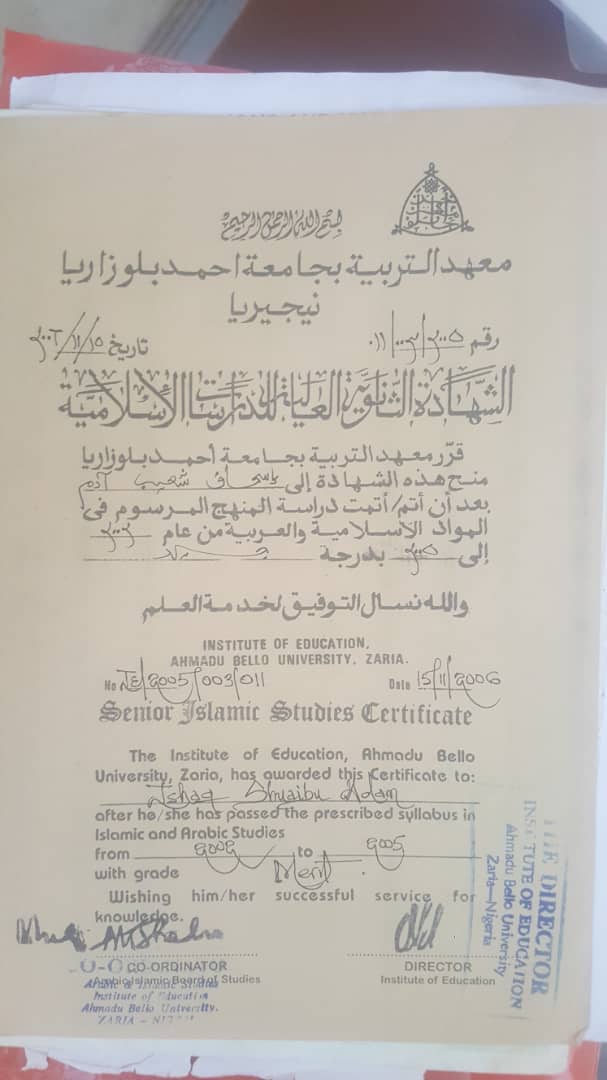 بسم الله الرحمن الرحيم
معهد التربية بجامعة احمد بلو زاريا
نيجيريا
رقم ٢٠٠٥/٠٠٣/٠١١
تاريخ ١٥/١١/٢٠٠٦
الشهادة الثانوية العالية للدراسات الإسلامية
قرر معهد التربية بجامعة أحمد بلو زاريا
منح هذه الشهادة إلى إسحاق شعيب آدم
بعد أن أتم/أتمت دراسة المنهج المرسوم في
المواد الاسلامية والعربية من عام
إلى ٢٠٠٥ بدرجة
والله نسال التوفيق لخدمة العلم
INSTITUTE OF EDUCATION,
AHMADU BELLO UNIVERSITY, ZARIA.
No IE/2005/003/011
Date 15/11/2006
Senior Islamic Studies Certificate
The Institute of Education, Ahmadu Bello
University, Zaria, has awarded this Certificate to:
Ishaq Shuaibu Adam
after he/she has passed the prescribed syllabus in
Islamic and Arabic Studies
from 2002 to 2005
with grade Merit
Wishing him/her successful service for
knowledge.
CO-ORDINATOR
Arabic Islamic Board of Studies
DIRECTOR
Institute of Education
Arabic & Islamic Studies
Institute of Education
Ahmadu Bello University.
ZARIA -
THE DIRECTOR
INSTITUTE OF EDUCATION
Ahmadu Bello University
Zaria—Nigeria